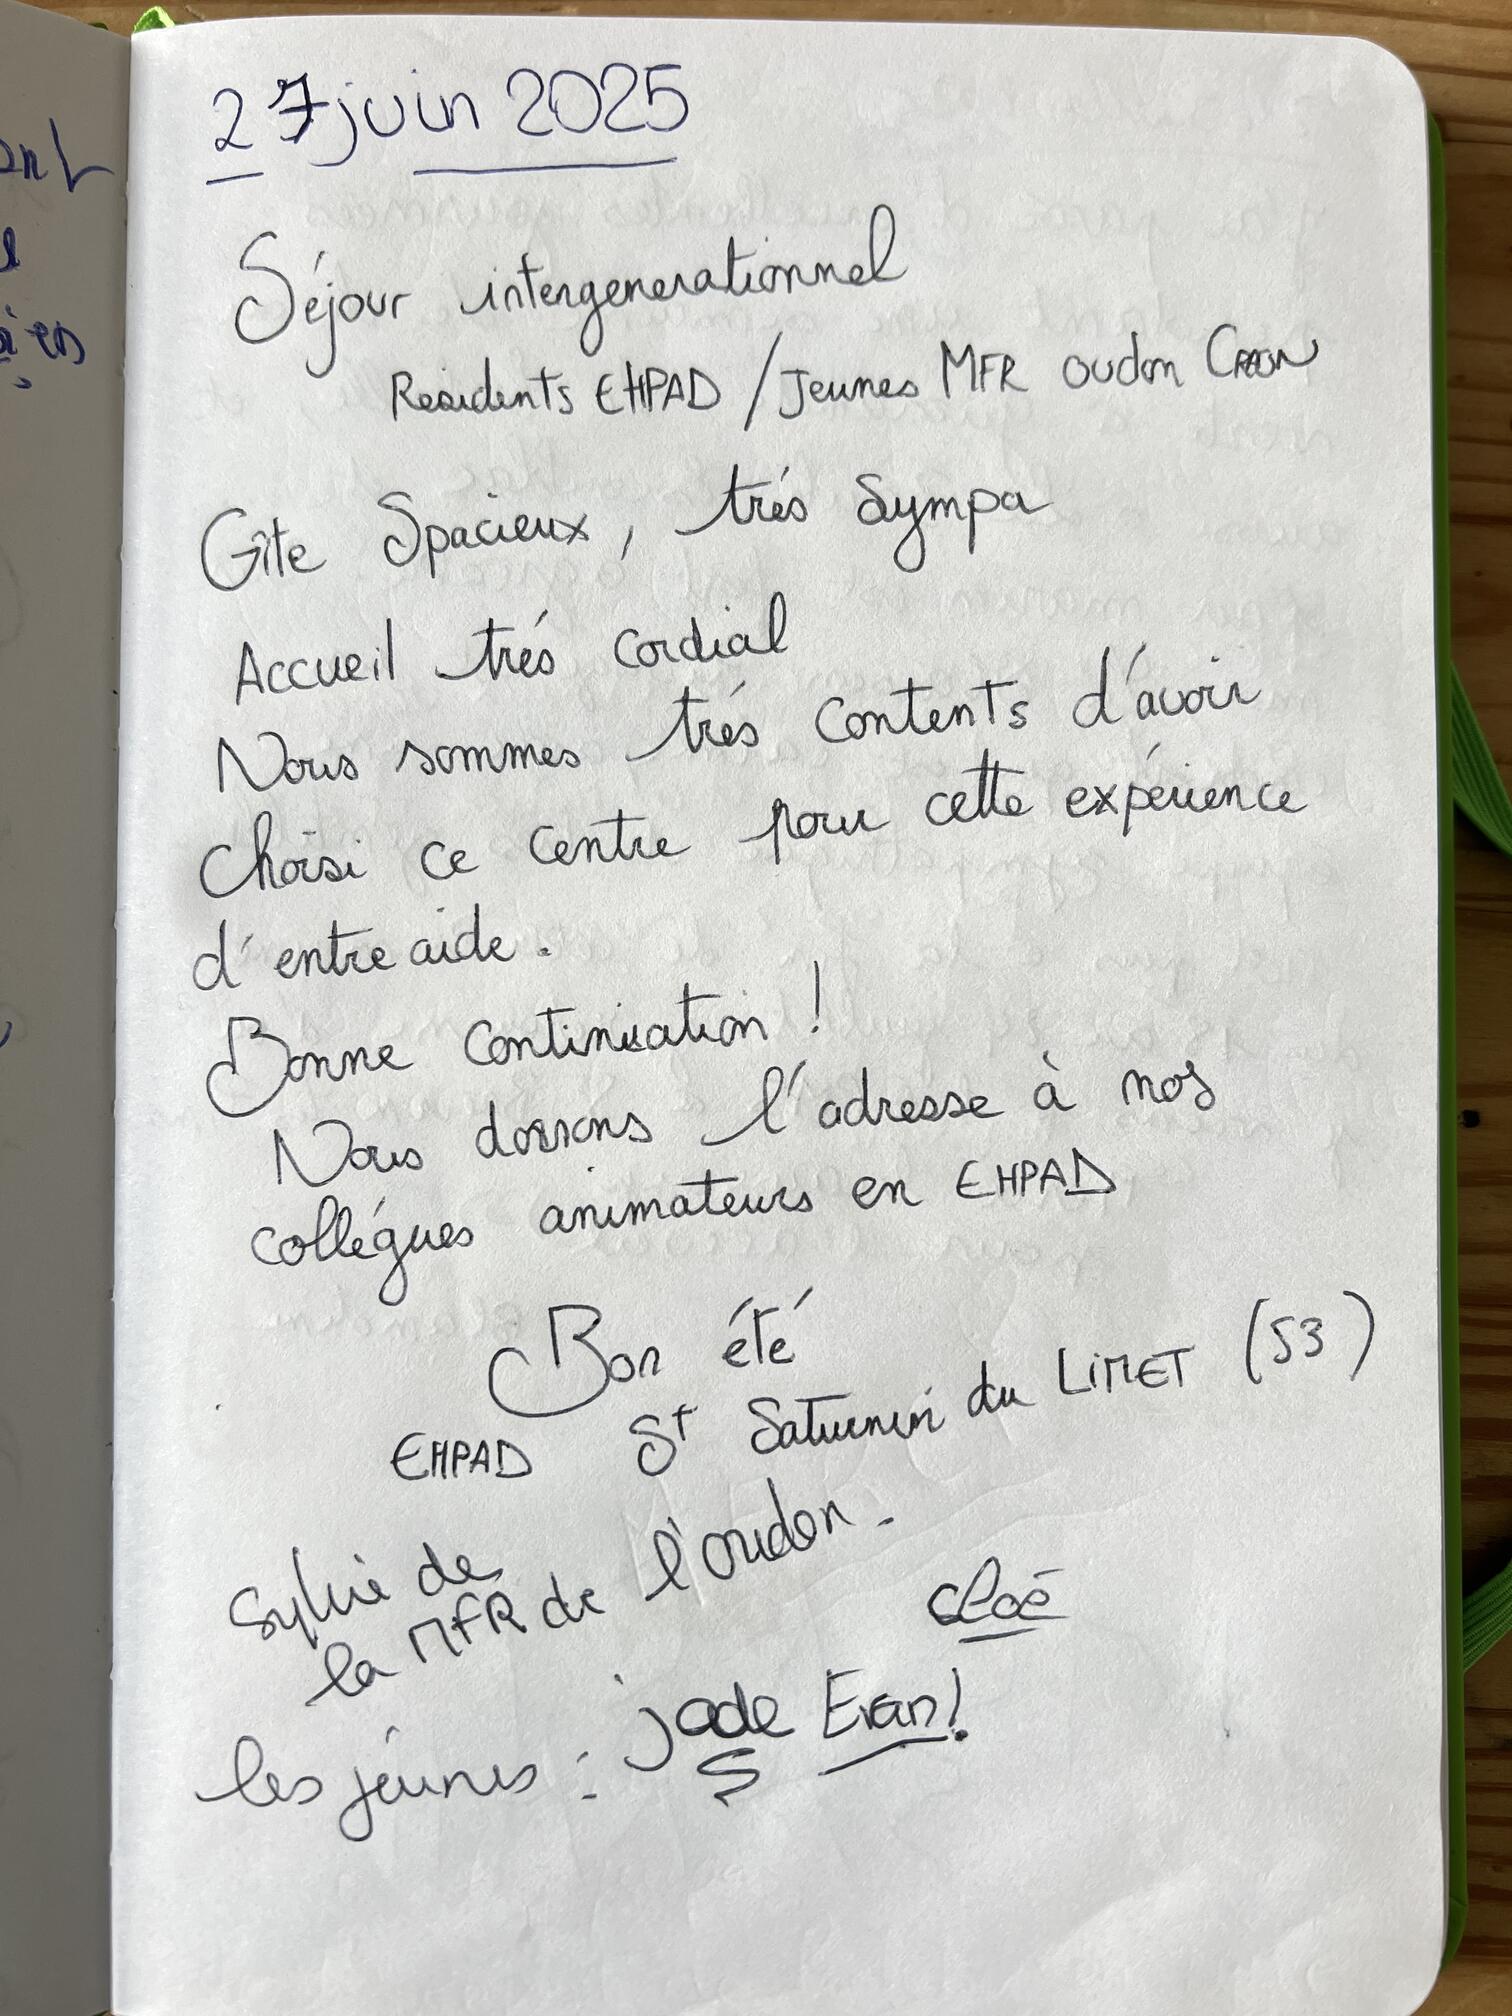 27 juin 2025
Séjour intergenerationnel
Residents EHPAD / Jeunes MFR oudon Craon
Gîte Spacieux, trés sympa
Accueil trés cordial
Nous sommes trés contents d'avoir
choisi ce centre pour cette expérience
d'entre aide.
Bonne continuation !
Nous donnons l'adresse à nos
collégues animateurs en EHPAD
Bon été
EHPAD St Saturnin du LiMET (53)
Sylvie de
la MFR de l'oudon.
cloé
les jeunes : jade Evan!